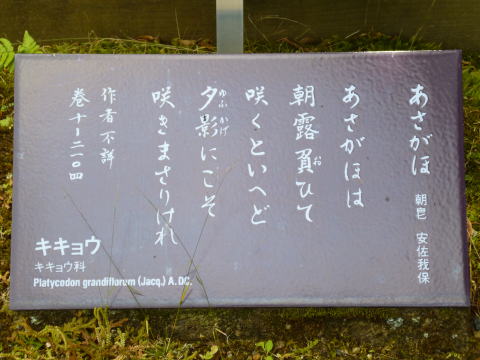 あさがほ 朝皃 安佐我保
あさがほは
朝露負ひて
お
咲くといへど
夕影にこそ
ゆふかげ
咲きまさりけれ
作者不詳
巻十ー二一〇四
キキョウ
キキョウ科
Platycodon grandiflorum (Jacq.) A. DC.